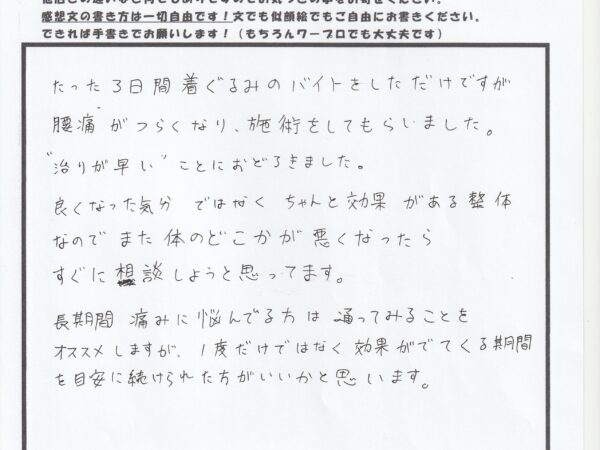 感想文の書き方は一切自由です！文でも似顔絵でもご自由にお書きください。
できれば手書きでお願いします！（もちろんワープロでも大丈夫です）
たった3日間着ぐるみのバイトをしただけですが
腰痛がつらくなり、施術をしてもらいました。
"治りが早い"ことにおどろきました。
良くなった気分ではなくちゃんと効果がある整体
なのでまた体のどこかが悪くなったら
すぐに相談しようと思ってます。
長期間痛みに悩んでる方は通ってみることを
オススメしますが、1度だけではなく効果がでてくる期間
を目安に続けられた方がいいかと思います。